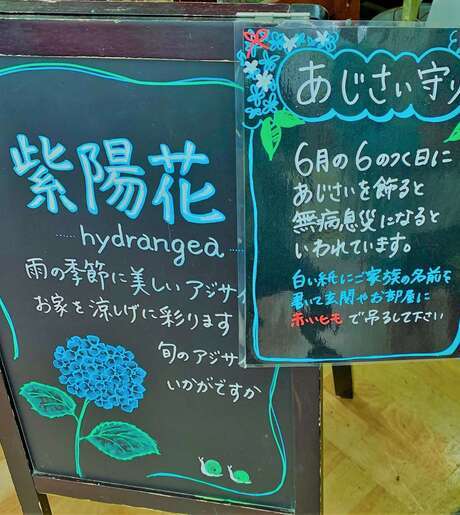 紫陽花
hydrangea
雨の季節に美しいアジサイ
お家を涼しげに彩ります
旬のアジサ
いかがですか
あじさい守り
6月の6のつく日に
あじさいを飾ると
無病息災になると
いわれています。
白い紙にご家族の名前を
書いて玄関やお部屋に
赤いヒモで吊るして下さい